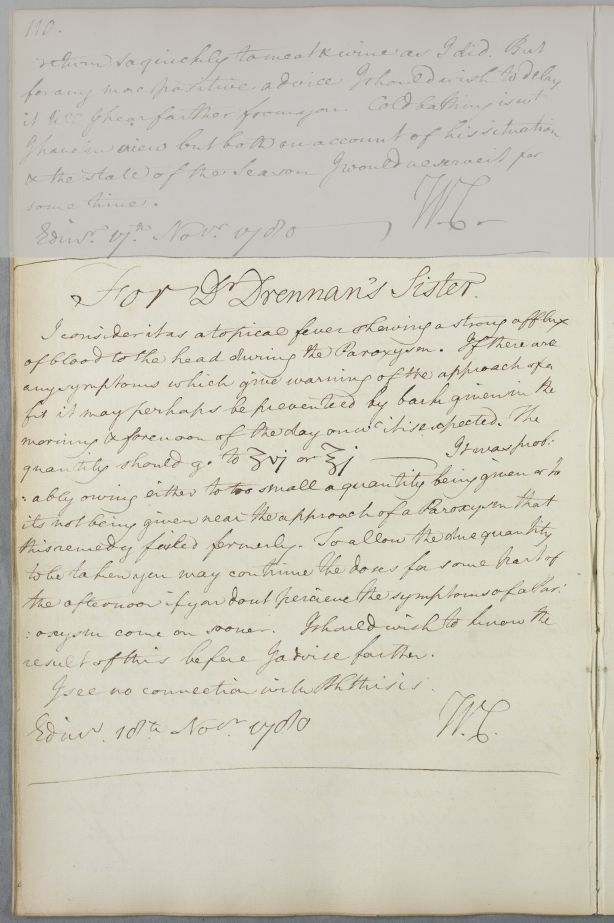 110.
return so quickly to meat & wine as I did. But
for any more positive advice I should wish to delay
it till I hear farther from you. Cold bathing is wt
I have in view but both on account of his situation
& the state of the Season I would reserve it for
some time.
Edinr. 17th Novr. 1780 W.C.
For Dr Drennan's Sister.
I consider it as a topical fever shewing a strong afflux
of blood to the head during the Paroxysm. If there are
any symptoms which give warning of the approach of a
fit it may perhaps be prevented by bark given in the
morning & forenoon of the day on wc it is expected. The
quantity should go to ʒvj or ℥j It was prob:
:ably owing either to too small a quantity being given or to
its not being given near the approach of a Paroxysm that
this remedy failed formerly. To allow the due quantity
to be taken you may continue the doses for some part of
the afternoon if you dont percieve the symptoms of a Par:
:oxysm come on sooner. I should wish to know the
result of this before I advise farther.
I see no connection with Phthisis.
Edinr. 18th Novr 1780 W.C.